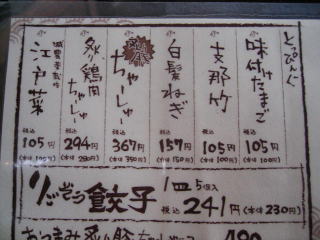 とっぴんぐ
味付けたまご
税込
105円
(本体 100円)
支那竹
税込
105円
(本体 100円)
白髪ねぎ
税込
157円
(本体 150円)
ちゃーしゅー
税込
367円
(本体 350円)
炙り鶏肉ちゃーしゅー
税込
294円
(本体 280円)
減農薬栽培
江戸菜
税込
105円
(本体 100円)
餃子
1皿 5個入
税込 241円 (本体 230円)
おつまみ炙り豚ちゃーしゅー